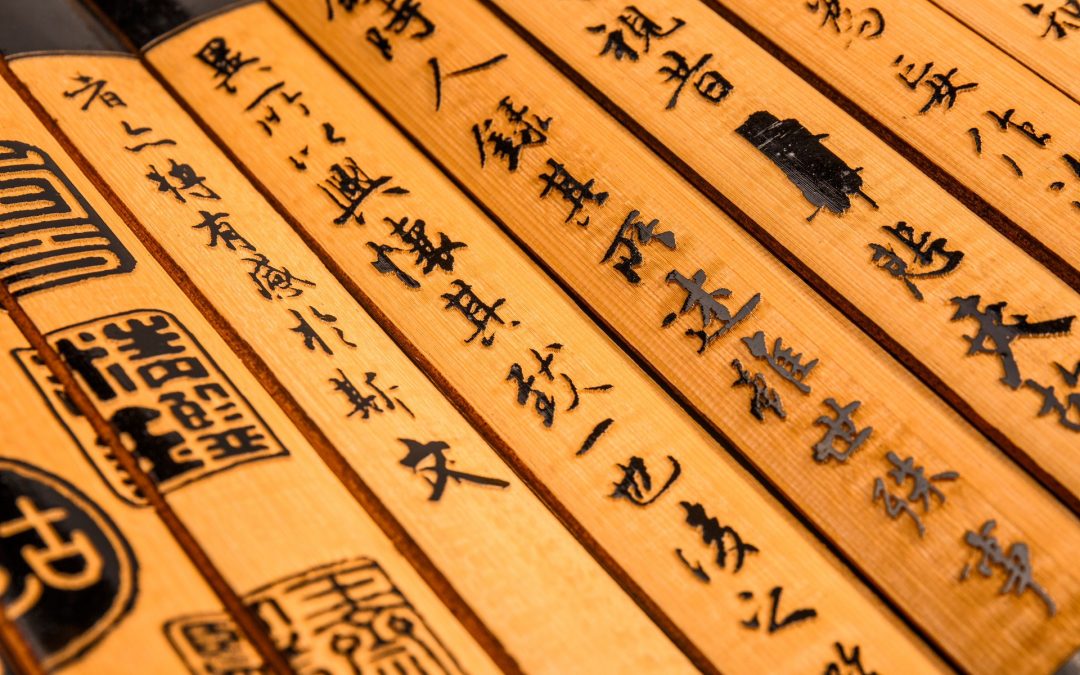 為妄作
視昔悲夫故
時人錄其所述雖世殊事
異所以興懷其致一也後之
者亦將有感於斯文